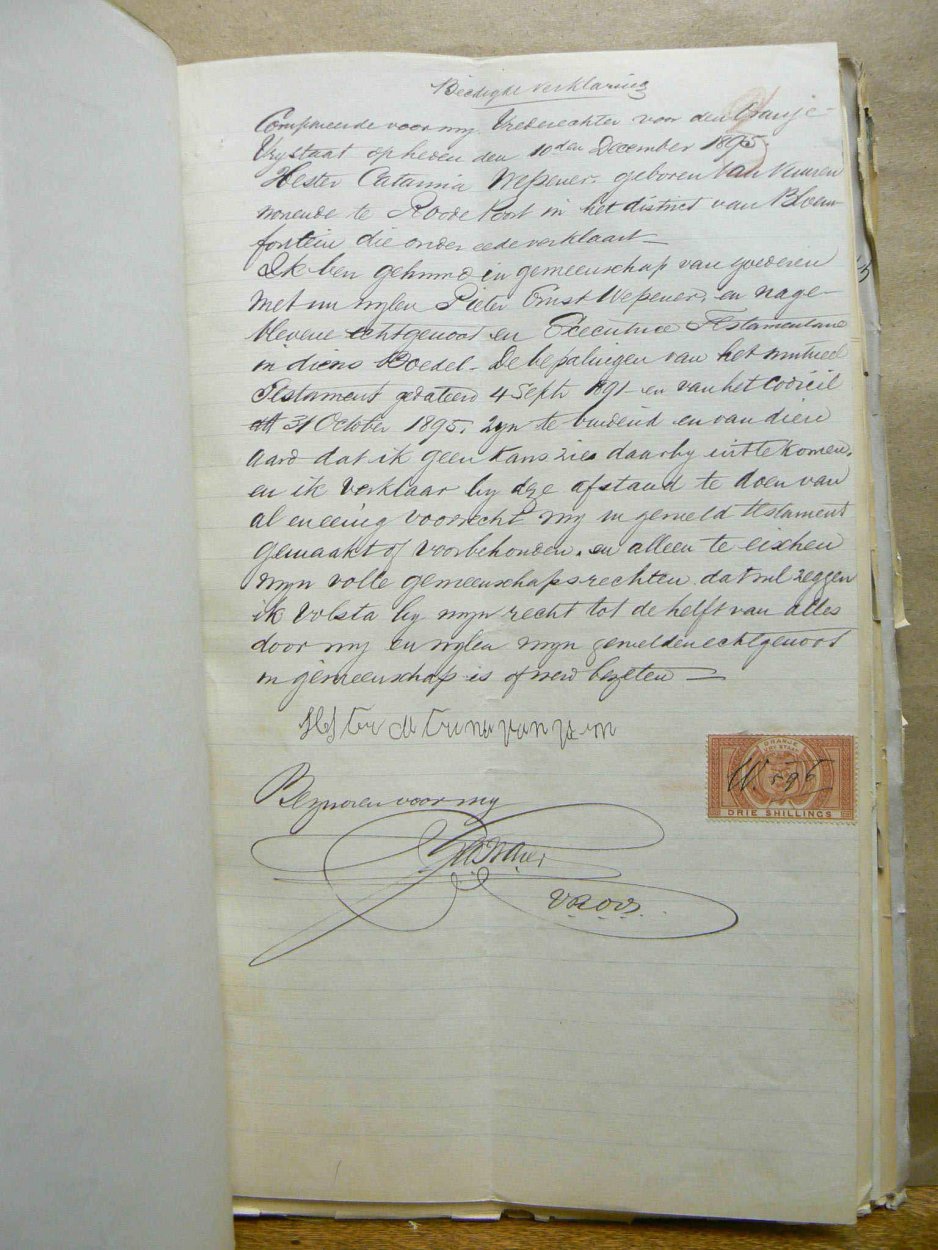 Beëdigde verklaring
Compareerde voor my Vrederechter voor den Oranje-
Vrystaat op heden den 10den December 1895.
Hester Catarina Wepener, geboren Van Vuuren
wonende te Roode Poort in het district van Bloem-
fontein die onder eede verklaart —
Ik ben gehuwd in gemeenschap van goederen
met nu wylen Pieter Ernst Wepener, en nage-
blevene echtgenoot en Executrice Testamentaire
in diens Boedel - De bepalingen van het mutueel
Testament gedateerd 4 Septr 1891 - en van het Codicil
dd 31 October 1895, zyn te buidend en van dien
aard dat ik geen kans zie daarby uit te komen,
en ik verklaar by deze afstand te doen van
al en eenig voorrecht my in gemeld testament
gemaakt of voorbehouden, en alleen te eischen
myn volle gemeenschapsrechten, dat wil zeggen
ik volsta by myn recht tot de helft van alles
door my en wylen myn gemelden echtgenoot
in gemeenschap is of werd bezeten —
Bezworen voor my
V.R.O.V.S.
ORANJE
VRY STAAT
DRIE SHILLINGS